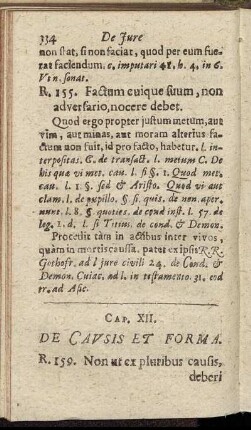 334 De Jure
non stat, si non faciat, quod per eum fue-
rat faciendum, c. imputari 41. h. 4. in 6.
VIn. sonat.
R. 155. Factum cuique suum, non
adversario, nocere debet.
Quod ergo propter justum metum, aut
vim, aut minas, aut moram alterius fa-
ctum non fuit, id pro facto, habetur. l. in-
terpositas. C. de transact. l. metum C. De
his quæ vi met. cau. l. si §. 1. Quod met.
cau. l. 1. §. sed & Aristo. Quod vi aut
clam. l. de pupillo. §. si quis. de nov. oper.
nunt. l. 8. § quoties. de cond inst. l. 57. de
leg. 1. d. l. si Titius. de cond. & Demon.
Procedit tàm in actibus inter vivos,
quàm in mortis caussa. patet ex ipsis R.R.
Gothofr. ad l jure civili 24. de Cond. &
Demon. Cuiac. ad l. in testamento. 31. eod
tr. ad Afic.
CAP. XII.
DE CAVSIS ET FORMA.
R. 159. Non ut ex pluribus causis,
deberi